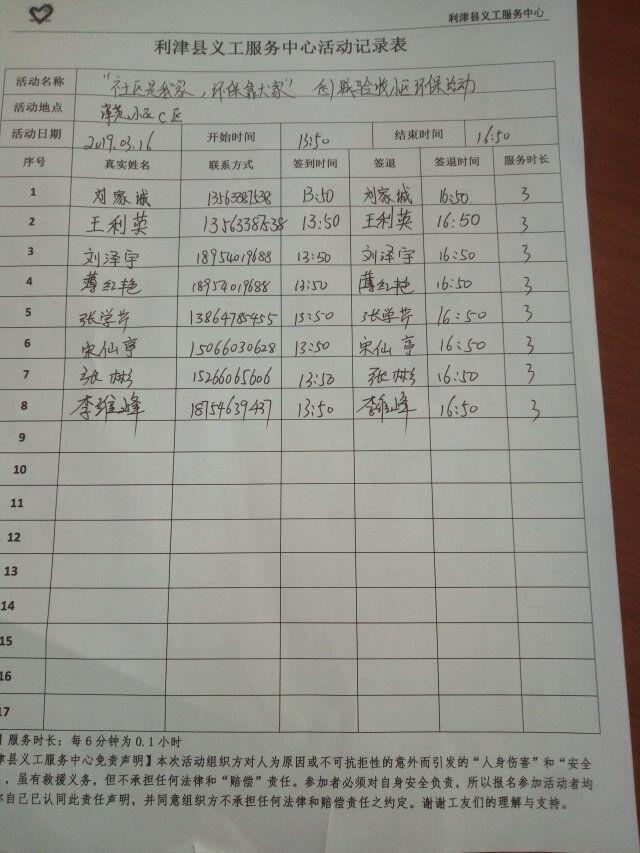 利津县义工服务中心
利津县义工服务中心活动记录表
活动名称 “社区是我家，环保靠大家” 创城验收小区环保活动
活动地点 小区C区
活动日期 2019.03.16 开始时间 13:50 结束时间 16:50
序号 真实姓名 联系方式 签到时间 签退 签退时间 服务时长
1 刘家诚 13563387538 13:50 刘家诚 16:50 3
2 王利英 13563387538 13:50 王利英 16:50 3
3 刘泽宇 18954019688 13:50 刘泽宇 16:50 3
4 薄红艳 18954019688 13:50 薄红艳 16:50 3
5 张学芹 13864785455 13:50 张学芹 16:50 3
6 宋仙亭 15066030628 13:50 宋仙亭 16:50 3
7 张彬 15266065606 13:50 张彬 16:50 3
8 李维峰 18754639437 13:50 李维峰 16:50 3
9
10
11
12
13
14
15
16
17
】服务时长：每6分钟为0.1小时
津县义工服务中心免责声明】本次活动组织方对人为原因或不可抗拒性的意外而引发的“人身伤害”和“安全
，虽有救援义务，但不承担任何法律和“赔偿”责任。参加者必须对自身安全负责，所以报名参加活动者均
自己已认同此责任声明，并同意组织方不承担任何法律和赔偿责任之约定。谢谢工友们的理解与支持。